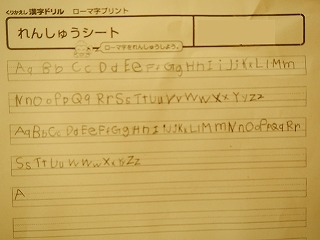 くりかえし漢字ドリル ローマ字プリント
れんしゅうシート
ローマ字をれんしゅうしよう。
Aa Bb Cc Dd Ee Ff Gg Hh Ii Jj Kk Ll Mm
Nn Oo Pp Qq Rr Ss Tt Uu Vv Ww Xx Yy Zz
Aa Bb Cc Dd Ee Ff Gg Hh Ii Jj Kk Ll Mm Nn Oo Pp Qq Rr
Ss Tt Uu Vv Ww Xx Yy Zz
A